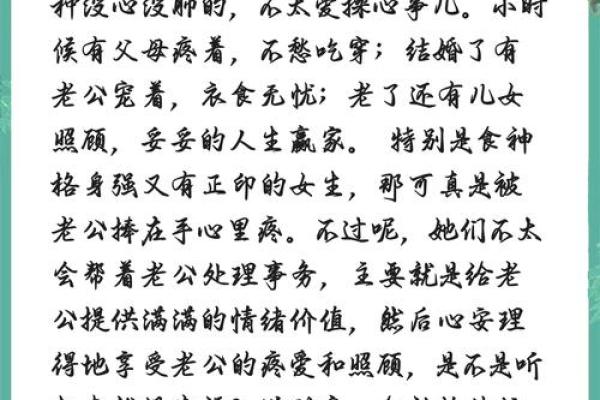 种没心没肺的，不太爱操心事儿。小时
候有父母疼着，不愁吃穿；结婚了有
老公宠着，衣食无忧；老了还有儿女
照顾，妥妥的人生赢家。 特别是食神
格身强又有正印的女生，那可真是被
老公捧在手心里疼。不过呢，她们不太
会帮着老公处理事务，主要就是给老
公提供满满的情绪价值，然后心安理
得地享受老公的疼爱和照顾，是不是听